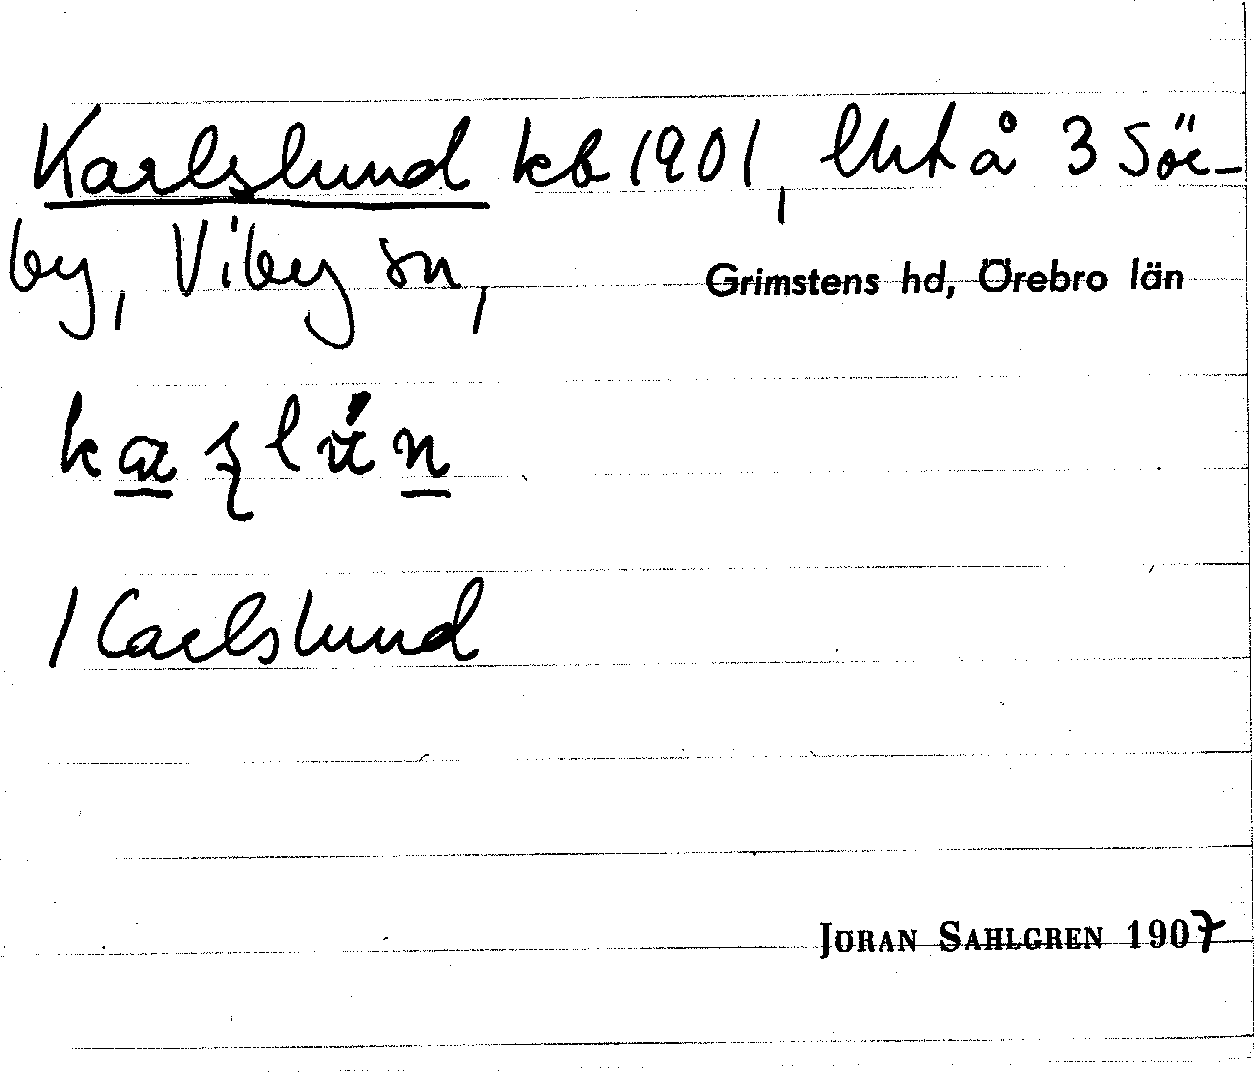 Karlslund kb 1901, lht å 3 Sör-
by, Viby sn, Grimstens hd, Örebro län
/ Carlslund
JÖRAN SAHLGREN 1907